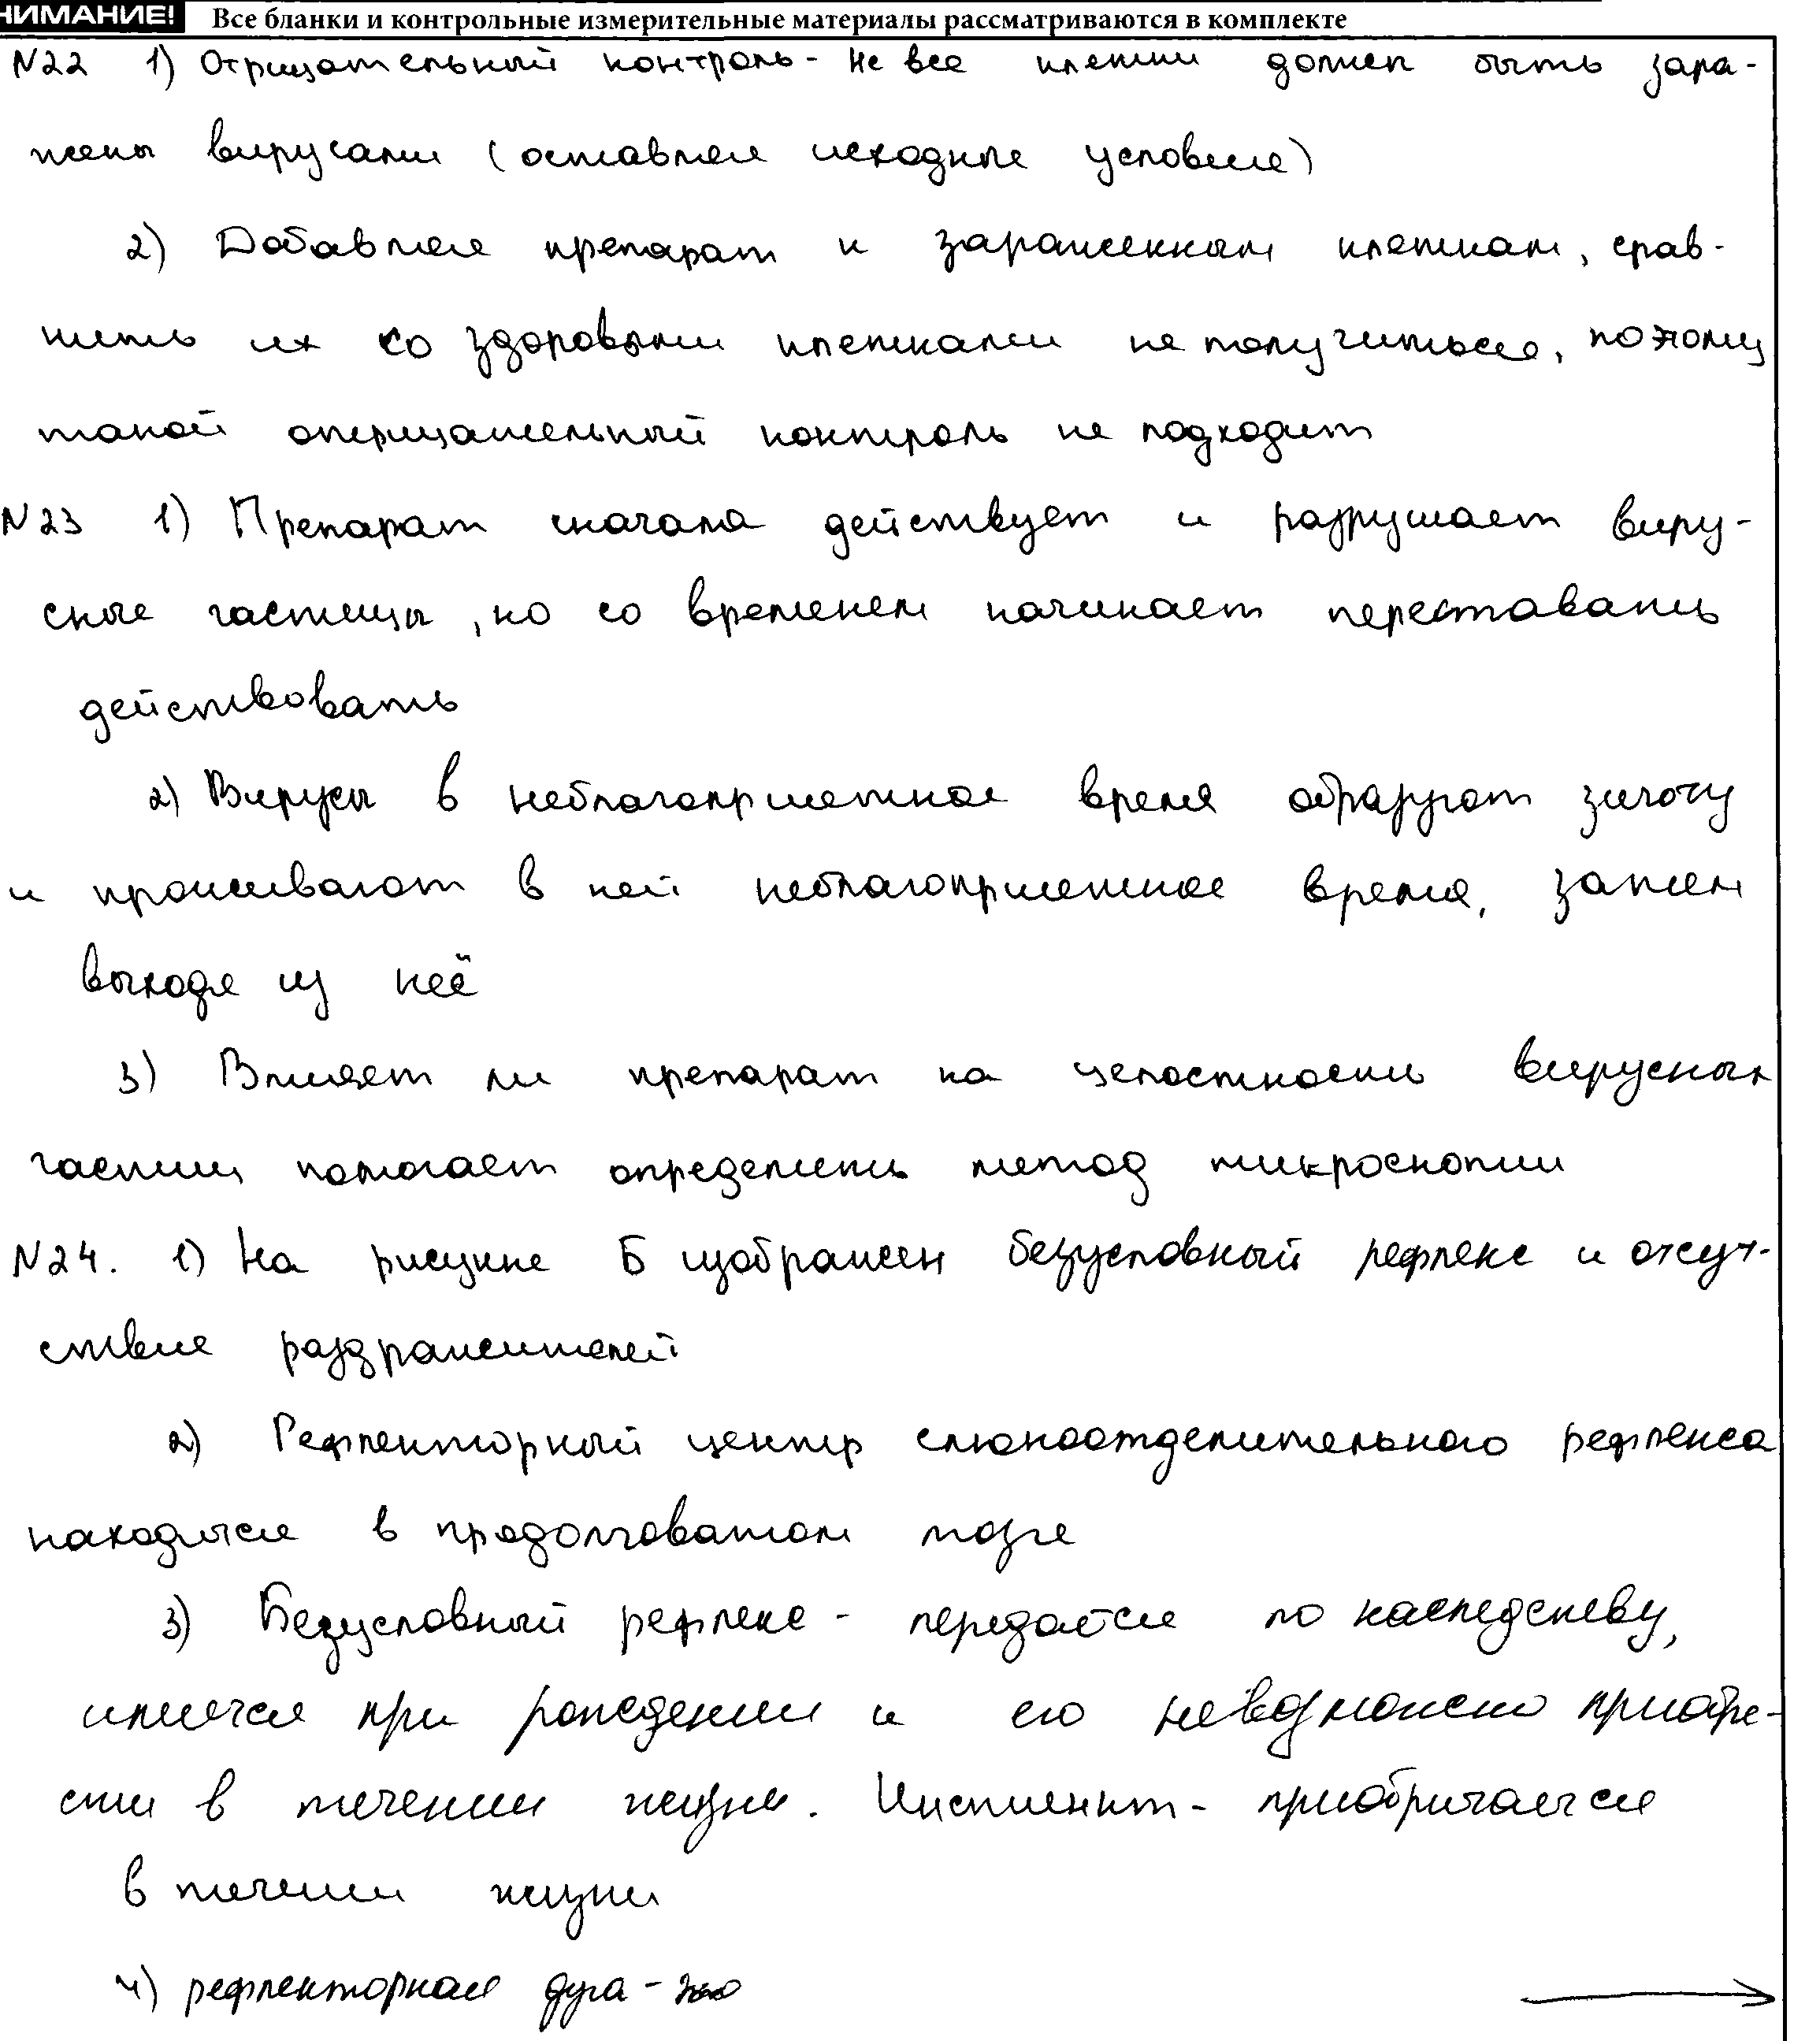 НИМАНИЕ! Все бланки и контрольные измерительные материалы рассматриваются в комплекте
N22 1) Отрицательный контроль - не все клетки должен быть зара-
жены вирусами (оставляя исходные условия)
2) Добавляя препарат к зараженным клеткам, срав-
нить их со здоровыми клетками не получиться, поэтому
такой отрицательный контроль не подходит
N23 1) Препарат сначала действует и разрушает виру-
сные частицы, но со временем начинает переставать
действовать
2) Вирусы в неблагоприятное время образуют зиготу
и проживают в ней неблагоприятное время, затем
выходя из неё
3) Влияет ли препарат на целостность вирусных
частиц помогает определить метод микроскопии
N24. 1) На рисунке Б изображен безусловный рефлекс и отсут-
ствие раздражителей
2) Рефлекторный центр слюноотделительного рефлекса
находится в продолговатом мозге
3) Безусловный рефлекс - передаётся по наследству,
имеется при рождении и его невозможно приобре-
сти в течении жизни. Инстинкт - приобричается
в течении жизни
4) рефлекторная дуга - это